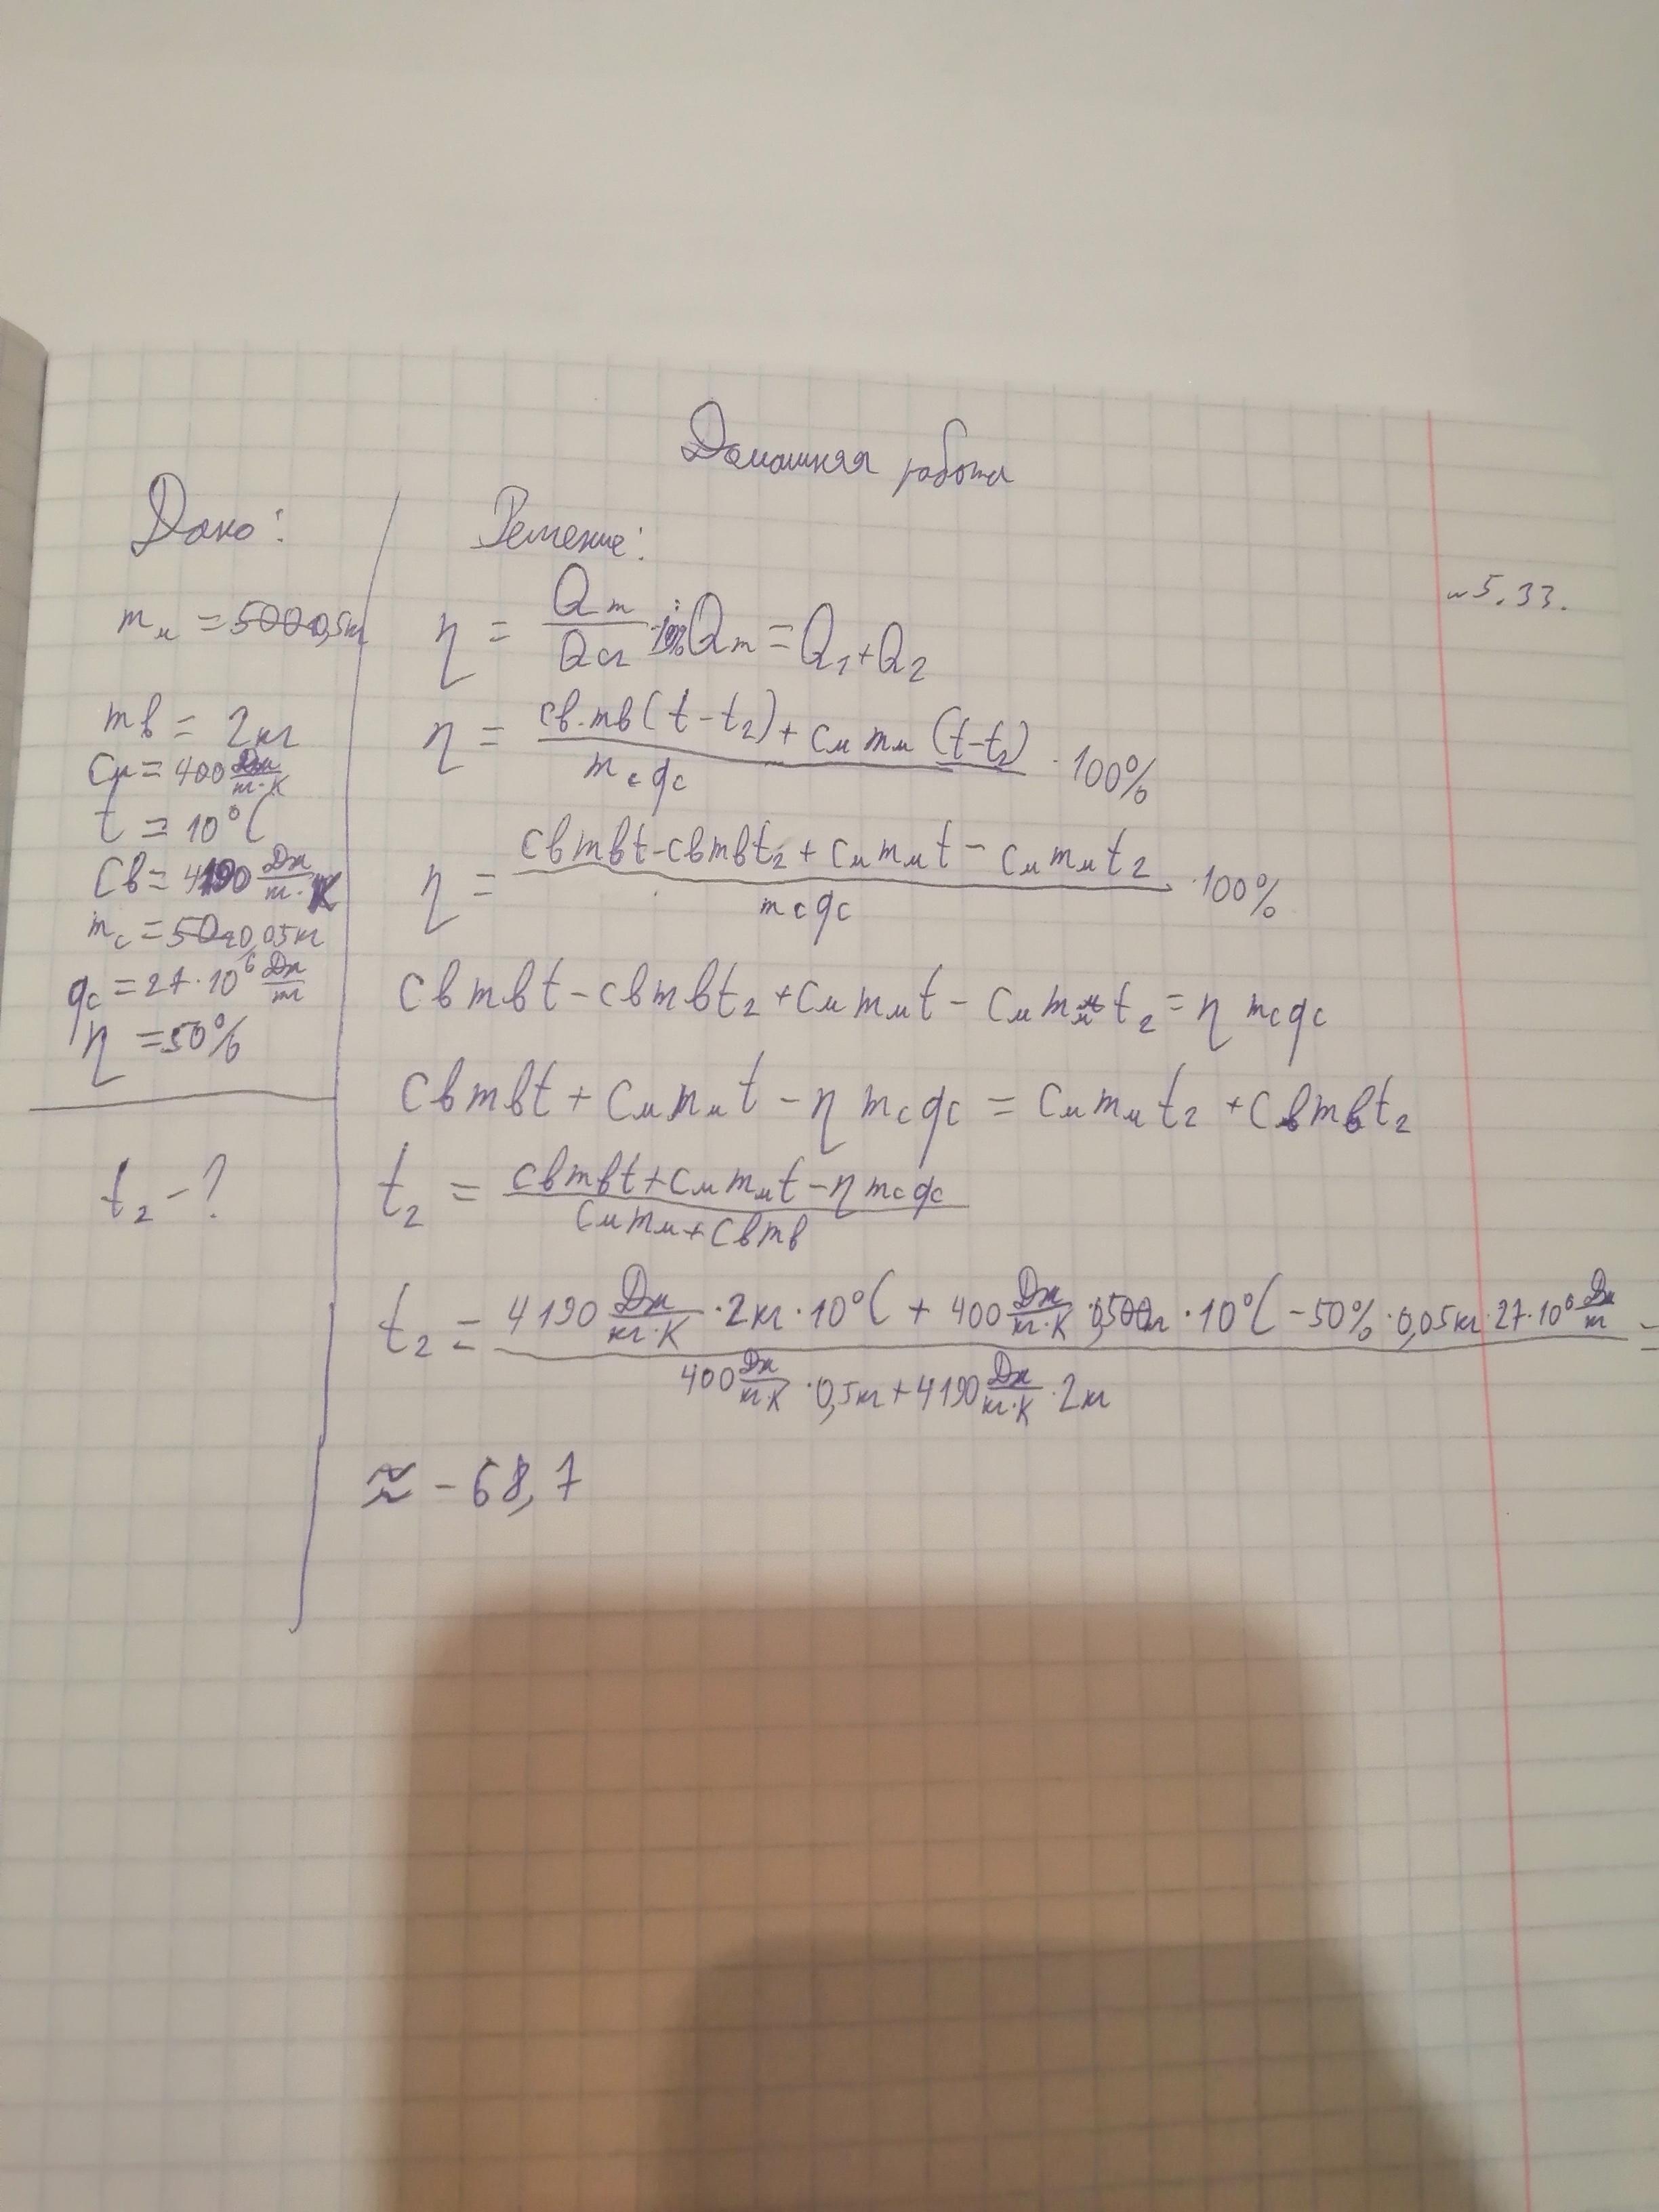 Домашняя работа
Дано:
Решение:
№5.33.
mм = 0,5кг
mв = 2кг
cм = 400 Дж/кг·К
t = 10°C
cв = 4190 Дж/кг·К
mс = 0,05кг
qс = 27·10⁶ Дж/кг
η = 50%
t₂ - ?
η = Qп/Qсг · 100%; Qп = Q₁ + Q₂
η = (cв·mв(t - t₂) + cм mм (t - t₂))/(mс qс) · 100%
η = (cв mв t - cв mв t₂ + cм mм t - cм mм t₂)/(mс qс) · 100%
cв mв t - cв mв t₂ + cм mм t - cм mм t₂ = η mс qс
cв mв t + cм mм t - η mс qс = cм mм t₂ + cв mв t₂
t₂ = (cв mв t + cм mм t - η mс qс)/(cм mм + cв mв)
t₂ = (4190 Дж/кг·К · 2кг · 10°C + 400 Дж/кг·К · 0,5кг · 10°C - 50% · 0,05кг · 27·10⁶ Дж/кг)/(400 Дж/кг·К · 0,5кг + 4190 Дж/кг·К · 2кг) =
≈ - 68,7